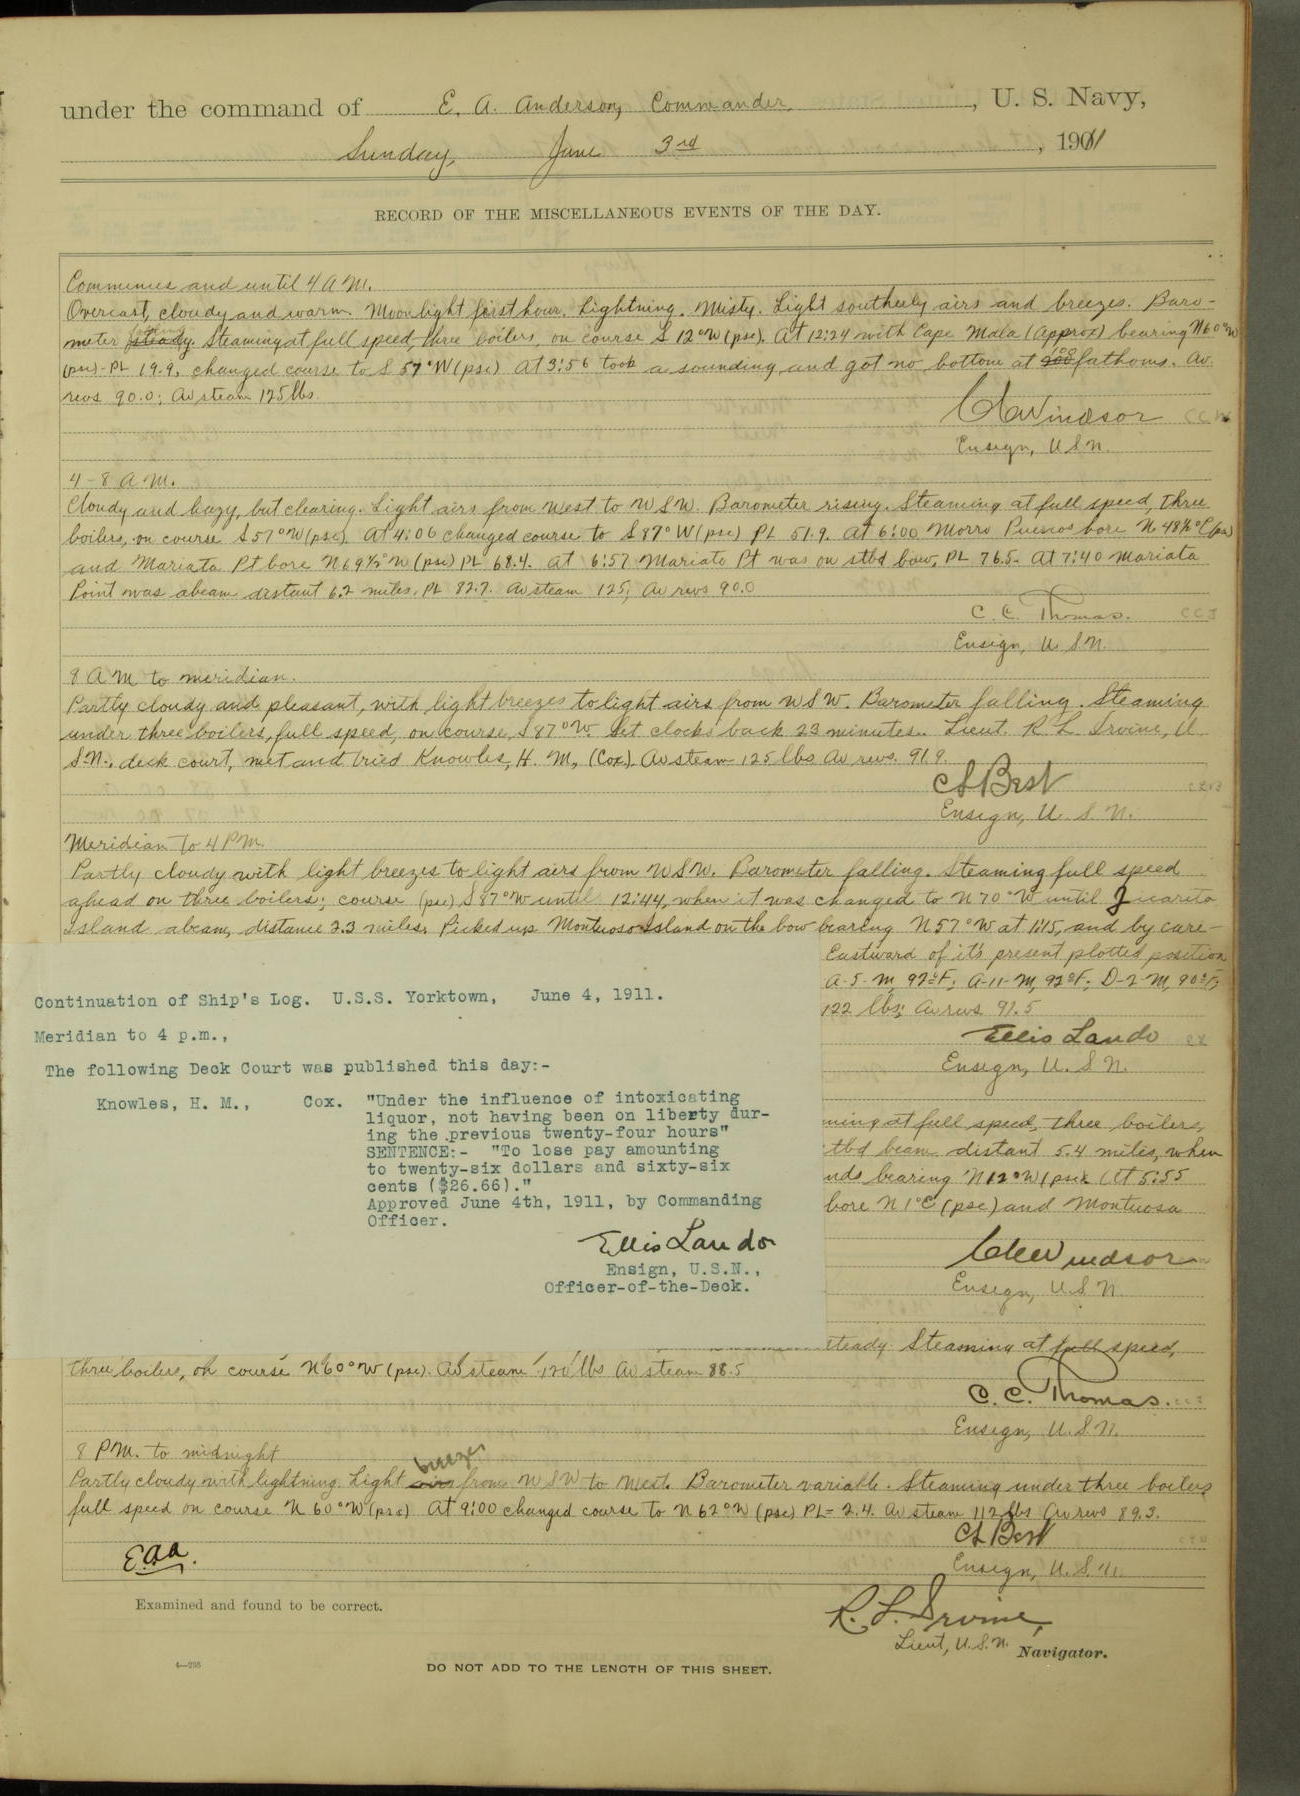 under the command of E. A. Anderson, Commander, U. S. Navy,
Sunday, June 3rd, 1911
RECORD OF THE MISCELLANEOUS EVENTS OF THE DAY.
Commences and until 4 A.M.
Overcast, cloudy and warm. Moonlight first hour. Lightning. Misty. Light southerly airs and breezes. Baro-
meter steady. Steaming at full speed, three boilers, on course S 12°W (psc). At 12:24 with Cape Mala (Approx) bearing N60°W
(psc) - PL 19.9, changed course to S 57°W (psc) At 3:56 took a sounding and got no bottom at fathoms. Av.
revs 90.0; Av steam 125 lbs.
CCWindsor
Ensign, U.S.N.
4-8 A.M.
Cloudy and hazy, but clearing. Light airs from West to WSW. Barometer rising. Steaming at full speed, three
boilers, on course S57°W (psc). At 4:06 changed course to S 87°W (psc) PL 51.9. At 6:00 Morro Puercos bore N 48½°E (psc)
and Mariata Pt bore N69½°W (psc) PL 68.4. At 6:57 Mariato Pt was on stbd bow, PL 76.5. At 7:40 Mariata
Point was abeam distant 6.2 miles, PL 82.7. Av steam 125; Av revs 90.0
C. C. Thomas.
Ensign, U.S.N.
8 A M to meridian.
Partly cloudy and pleasant, with light breezes to light airs from WSW. Barometer falling. Steaming
under three boilers, full speed, on course S 87°W. Set clocks back 23 minutes. Lieut. R L Irvine, U
S.N., deck court, met and tried Knowles, H. M, (Cox). Av steam 125 lbs Av revs. 91.9.
CLBest
Ensign, U. S. N.
Meridian to 4 P.M.
Partly cloudy with light breezes to light airs from WSW. Barometer falling. Steaming full speed
ahead on three boilers; course (psc) S 87°W until 12:44, when it was changed to N 70°W until Jicarita
Island abeam, distance 2.3 miles. Picked up Montuosa Island on the bow bearing N 57°W at 1:15, and by care-
Eastward of it's present plotted position
A-5-M, 97°F; A-11-M, 92°F; D-2-M, 90°F;
122 lbs; Av revs 91.5
Ellis Lando
Ensign, U. S. N.
Continuation of Ship's Log. U.S.S. Yorktown, June 4, 1911.
Meridian to 4 p.m.,
The following Deck Court was published this day:-
Knowles, H. M., Cox. "Under the influence of intoxicating
liquor, not having been on liberty dur-
ing the previous twenty-four hours"
SENTENCE:- "To lose pay amounting
to twenty-six dollars and sixty-six
cents ($26.66)."
Approved June 4th, 1911, by Commanding
Officer.
Ellis Lando
Ensign, U.S.N.,
Officer-of-the-Deck.
ming at full speed, three boilers,
tbd beam distant 5.4 miles, when
nds bearing N12°W (psc). At 5:55
bore N 1°E (psc) and Montuosa
CCWindsor
Ensign, U.S.N.
steady. Steaming at full speed,
three boilers, on course N60°W (psc). Av steam 120 lbs Av steam 88.5
C. C. Thomas.
Ensign, U.S.N.
8 P.M. to midnight
Partly cloudy with lightning. Light airs breezes from WSW to West. Barometer variable. Steaming under three boilers
full speed on course N 60°W (psc) At 9:00 changed course to N 62°W (psc) PL= 2.4. Av steam 112 lbs Av revs 89.3.
CLBest
Ensign, U.S.N.
E.A.A.
Examined and found to be correct.
R. L. Irvine,
Lieut, U.S.N. Navigator.
4—298
DO NOT ADD TO THE LENGTH OF THIS SHEET.